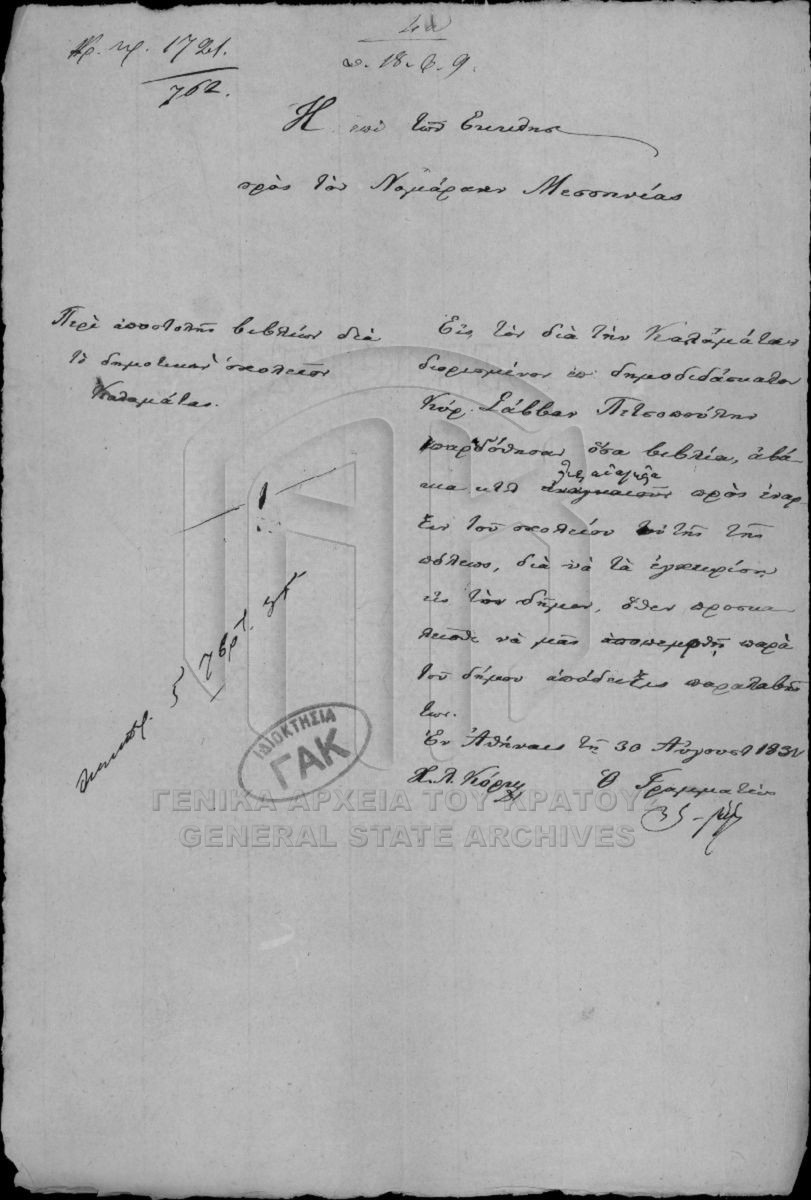 Ἀρ. πρ. 1721.
762.
π. 18. 6. 9.
Ἡ ἐπὶ τῶν Ἐκκλησ
πρὸς τὸν Νομάρχην Μεσσηνίας
Περὶ ἀποστολῆς βιβλίων διὰ
τὸ δημοτικὸν σχολεῖον
Καλαμάτας.
Εἰς τὸν διὰ τὴν Καλαμάταν
διορισμένον δημοδιδάσκαλον
Κύρ. Σάββαν Πετσοπούλην
παρεδόθησαν ὅσα βιβλία, ἀβά-
κια κτλ ἀναγκαῖα πρὸς ἔναρ
ξιν τοῦ σχολείου τῆς
πόλεως, διὰ νὰ τὰ ἐγχειρίσῃ
εἰς τὸν δῆμον, ὅθεν προσκα
λεῖσθε νὰ μᾶς ἀποπεμφθῇ παρὰ
τοῦ δήμου ἀπόδειξις παραλαβῆς
των.
Ἐν Ἀθήναις τῇ 30 Αὐγούστ
Ὁ Γραμματεὺς
5 7βρ.
ΙΔΙΟΚΤΗΣΙΑ
ΓΑΚ
ΓΕΝΙΚΑ ΑΡΧΕΙΑ ΤΟΥ ΚΡΑΤΟΥΣ
GENERAL STATE ARCHIVES